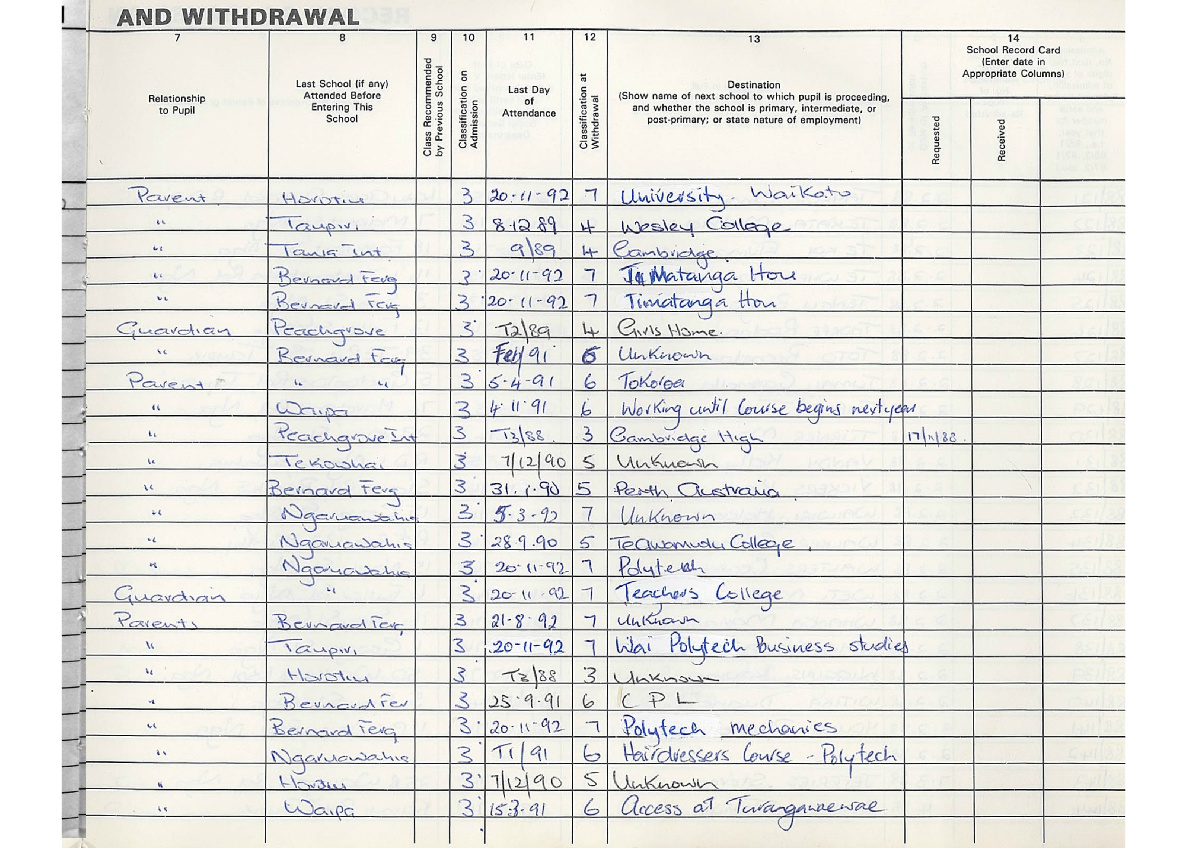 AND WITHDRAWAL
7 8 9 10 11 12 13 14
Relationship to Pupil
Last School (if any) Attended Before Entering This School
Class Recommended by Previous School
Classification on Admission
Last Day of Attendance
Classification at Withdrawal
Destination (Show name of next school to which pupil is proceeding, and whether the school is primary, intermediate, or post-primary; or state nature of employment)
School Record Card (Enter date in Appropriate Columns)
Requested
Received
Parent Horotiu 3 20-11-92 7 University - Waikato
" Taupiri 3 8.12.89 4 Wesley College
" Int 3 9/89 4 Cambridge
" Bernard Ferg 3 20-11-92 7 Matanga Hou
" Bernard Ferg 3 20-11-92 7 Timatanga Hou
Guardian Peachgrove 3 T2/89 4 Girls Home.
" Bernard Ferg 3 Feb/91 6 Unknown
Parent " " 3 5-4-91 6 Tokoroa
" Waipa 3 4.11.91 6 Working until Course begins next year
" Peachgrove Int 3 T3/88 3 Cambridge High 17/11/88.
" Tekowhai 3 7/12/90 5 Unknown
" Bernard Ferg 3 31.1.90 5 Perth Australia
" Ngaruawahia 3 5.3-92 7 Unknown
" Ngaruawahia 3 28.9.90 5 Teawamutu College.
" Ngaruawahia 3 20-11-92 7 Polytech
Guardian " 3 20-11-92 7 Teachers College
Parents Bernard Ferg 3 21-8-92 7 Unknown
" Taupiri 3 20-11-92 7 Wai Polytech Business studies
" Horotiu 3 T3/88 3 Unknown
" Bernard Fer 3 25.9.91 6 C P L
" Bernard Ferg 3 20-11-92 7 Polytech mechanics
" Ngaruawahia 3 T1/91 6 Hairdressers Course - Polytech
" Horotiu 3 7/12/90 5 Unknown
" Waipa 3 15.3.91 6 Access at Turangawaewae